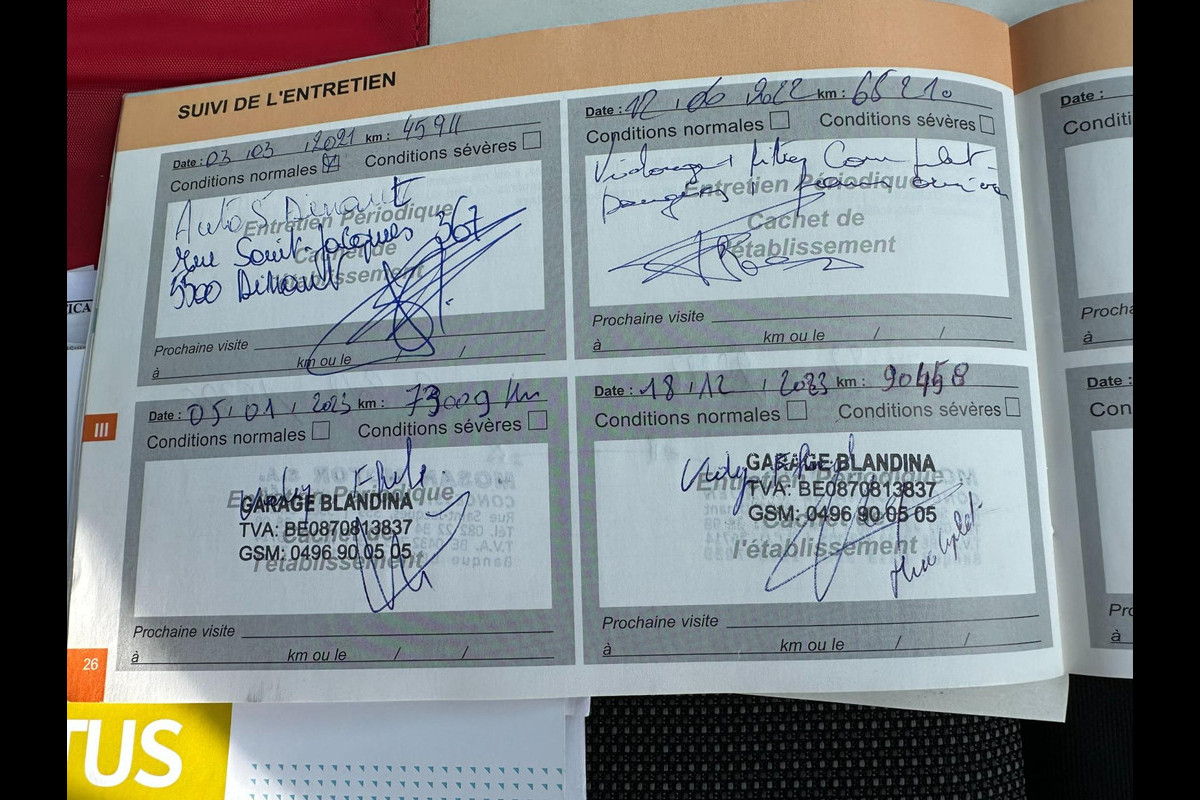 SUIVI DE L'ENTRETIEN
Date : 03 / 03 / 2021 km : 45911
Conditions normales Conditions sévères
Entretien Périodique
Cachet de
l'établissement
Auto S Dinant
rue Saint-Jacques 367
5500 Dinant
Prochaine visite
à km ou le / /
Date : 12 / 06 / 2022 km : 65210
Conditions normales Conditions sévères
Entretien Périodique
Cachet de
l'établissement
Vidange + filtres Complet
Prochaine visite
à km ou le / /
Date : 05 / 01 / 2023 km : 73009 km
Conditions normales Conditions sévères
Entretien Périodique
Cachet de
l'établissement
GARAGE BLANDINA
TVA: BE0870813837
GSM: 0496 90 05 05
Prochaine visite
à km ou le / /
Date : 18 / 12 / 2023 km : 90458
Conditions normales Conditions sévères
Entretien Périodique
Cachet de
l'établissement
GARAGE BLANDINA
TVA: BE0870813837
GSM: 0496 90 05 05
Prochaine visite
à km ou le / /
III
26
TICA
TUS
Date :
Conditi
Procha
à
Date :
Con
Pro
à